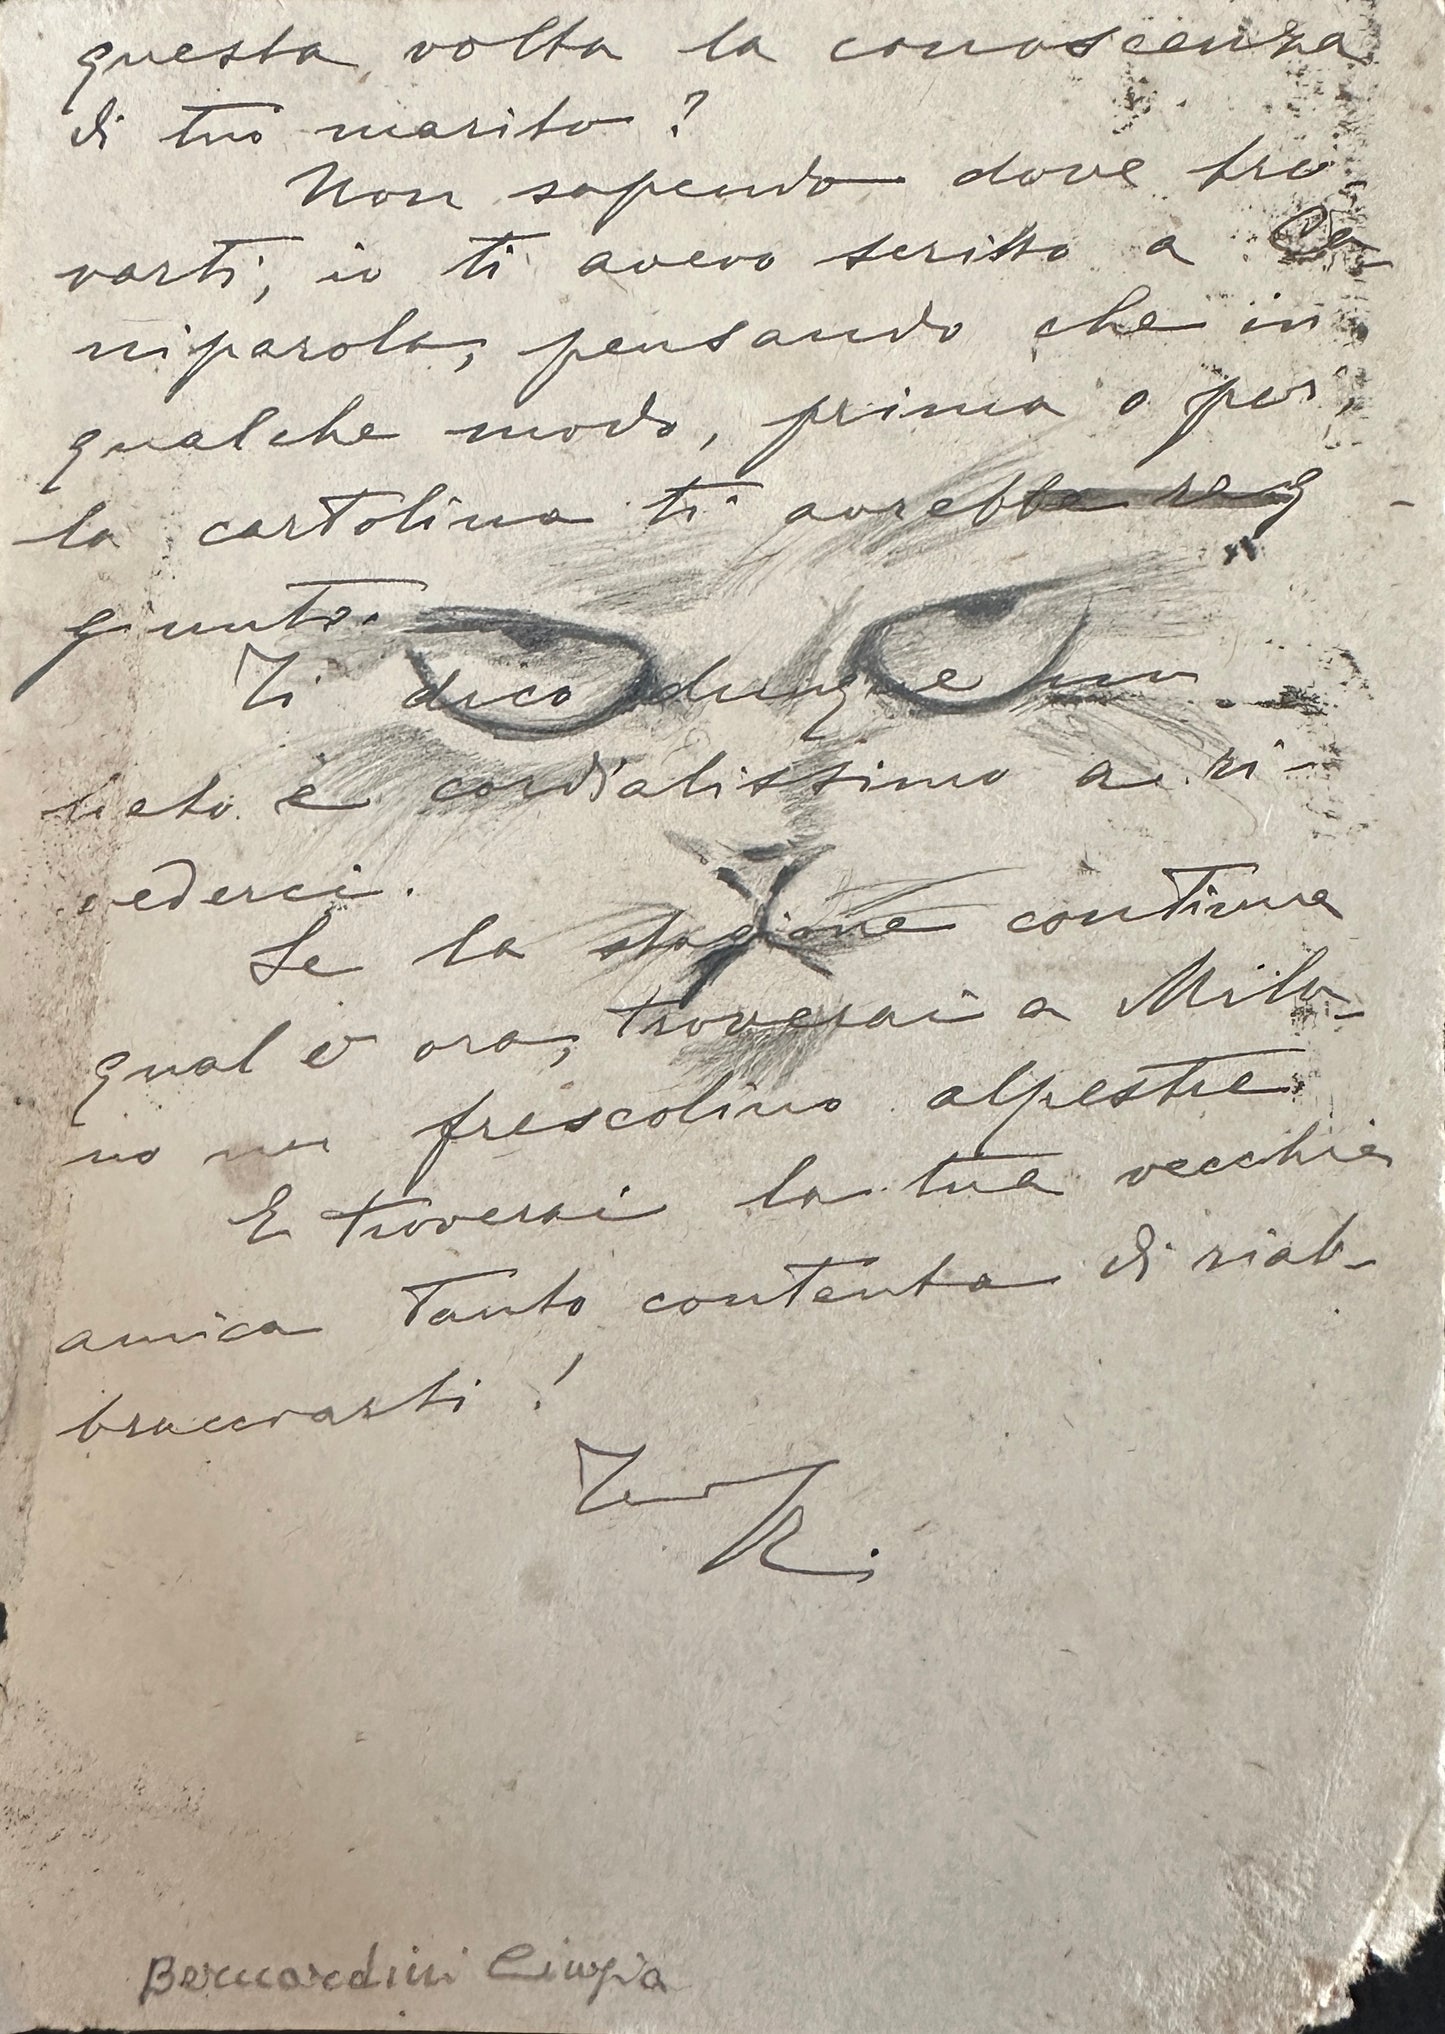 questa volta la conoscenza
di tuo marito?
Non sapendo dove tro
varti, io ti avevo scritto a Ce
niparola, pensando che in
qualche modo, prima o poi,
la cartolina ti avrebbe rag-
giunto.
Ti dico dunque un
lieto e cordialissimo a ri-
vederci.
Se la stagione continua
qual è ora, troverai a Mila-
no un frescolino alpestre
E troverai la tua vecchia
amica tanto contenta di riab-
bracciarti!
Tua
R.
Bernardini